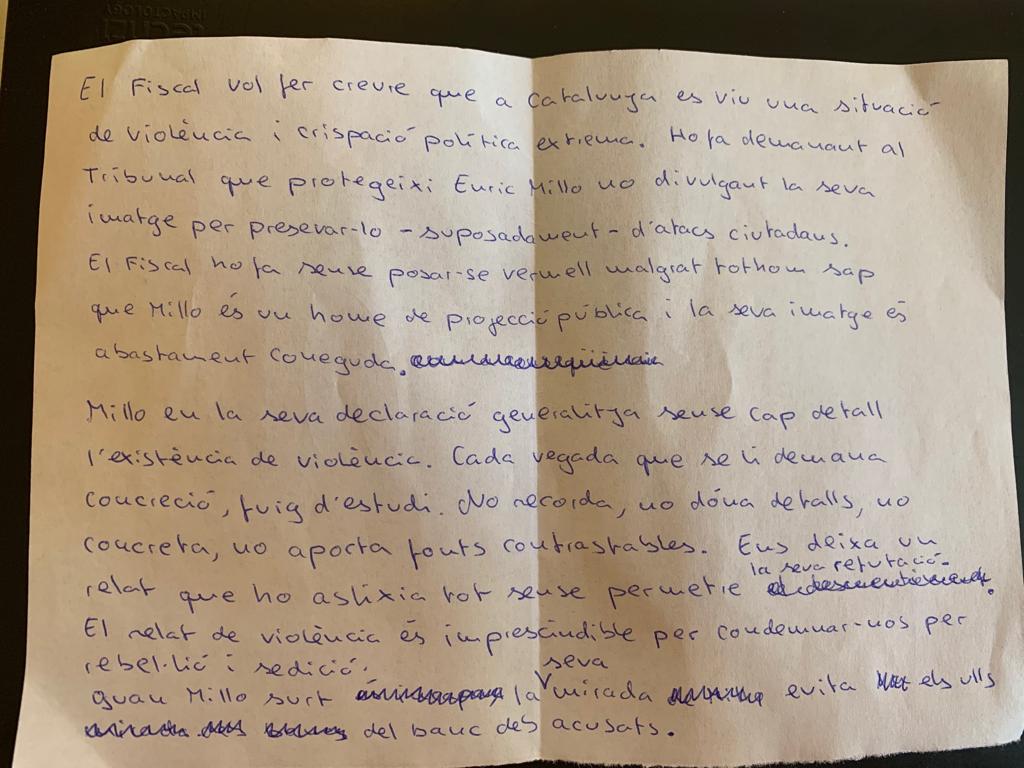 El Fiscal vol fer creure que a Catalunya es viu una situació
de violència i crispació política extrema. Ho fa demanant al
Tribunal que protegeixi Enric Millo no divulgant la seva
imatge per presevar-lo - suposadament - d'atacs ciutadans.
El Fiscal ho fa sense posar-se vermell malgrat tothom sap
que Millo és un home de projecció pública i la seva imatge és
abastament coneguda.
Millo en la seva declaració generalitza sense cap detall
l'existència de violència. Cada vegada que se li demana
concreció, fuig d'estudi. No recorda, no dóna detalls, no
concreta, no aporta fonts contrastables. Ens deixa un
relat que ho asfixia tot sense permetre la seva refutació.
El relat de violència és imprescindible per condemnar-nos per
rebel·lió i sedició.
Quan Millo surt la seva mirada evita els ulls
del banc dels acusats.